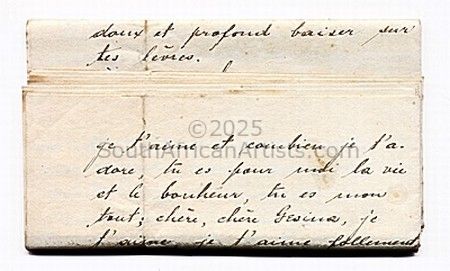 doux et profond baiser sur
tes lèvres.
je t'aime et combien je t'a-
dore, tu es pour moi la vie
et le bonheur, tu es mon
tout; chère, chère Gesina, je
t'aime, je t'aime follement
©2025
SouthAfricanArtists.com